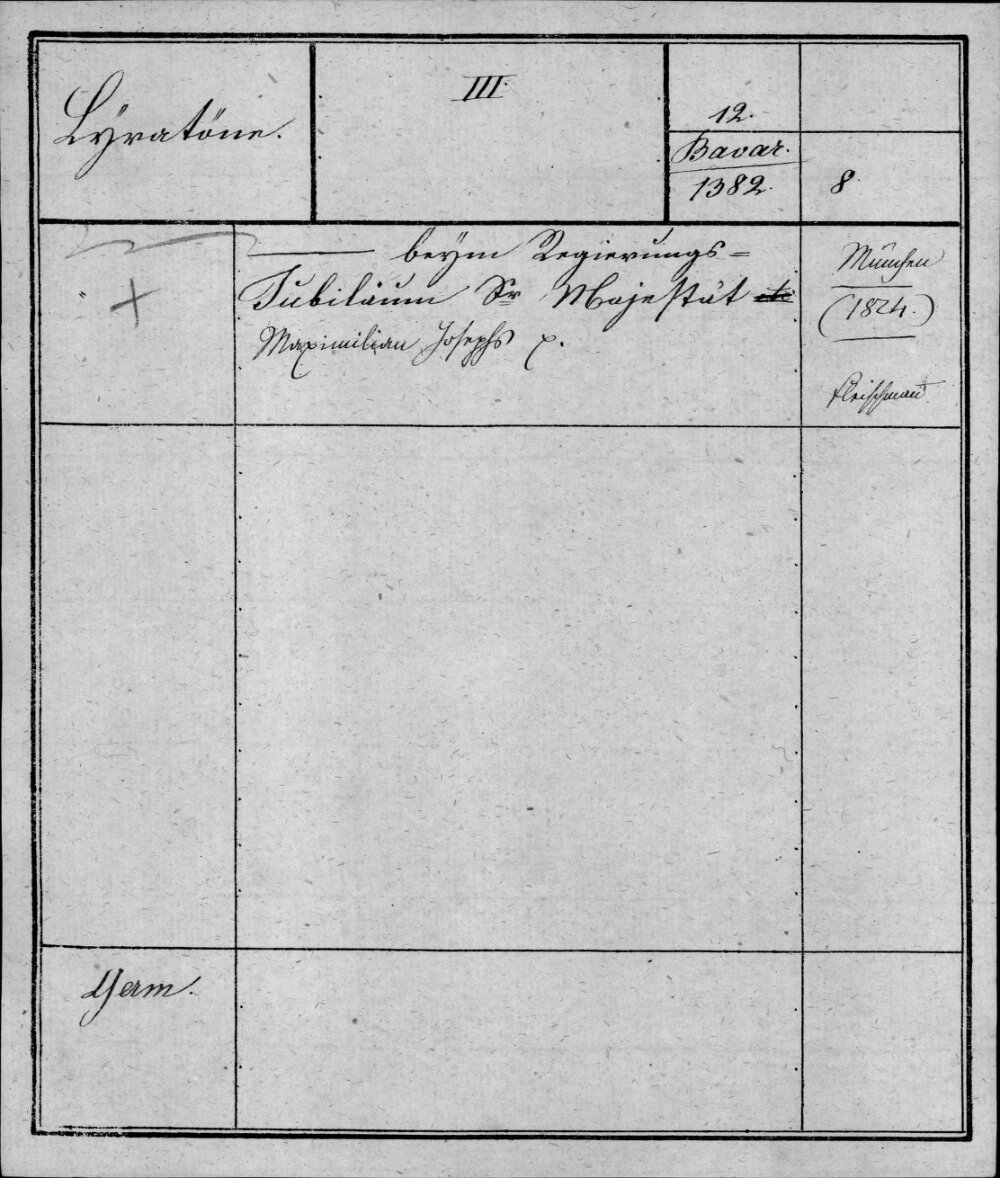 Lyratöne.
III.
12.
Bavar.
1382.
8.
—— beym Regierungs=
Jubiläum Sr Majestät
Maximilian Josephs p.
München
(1824.)
Fleischmann
Germ.